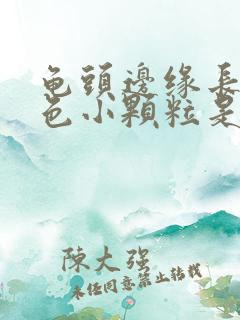 龟頭邊缘長
色小顆粒是
陳大强
未经同意禁止转载